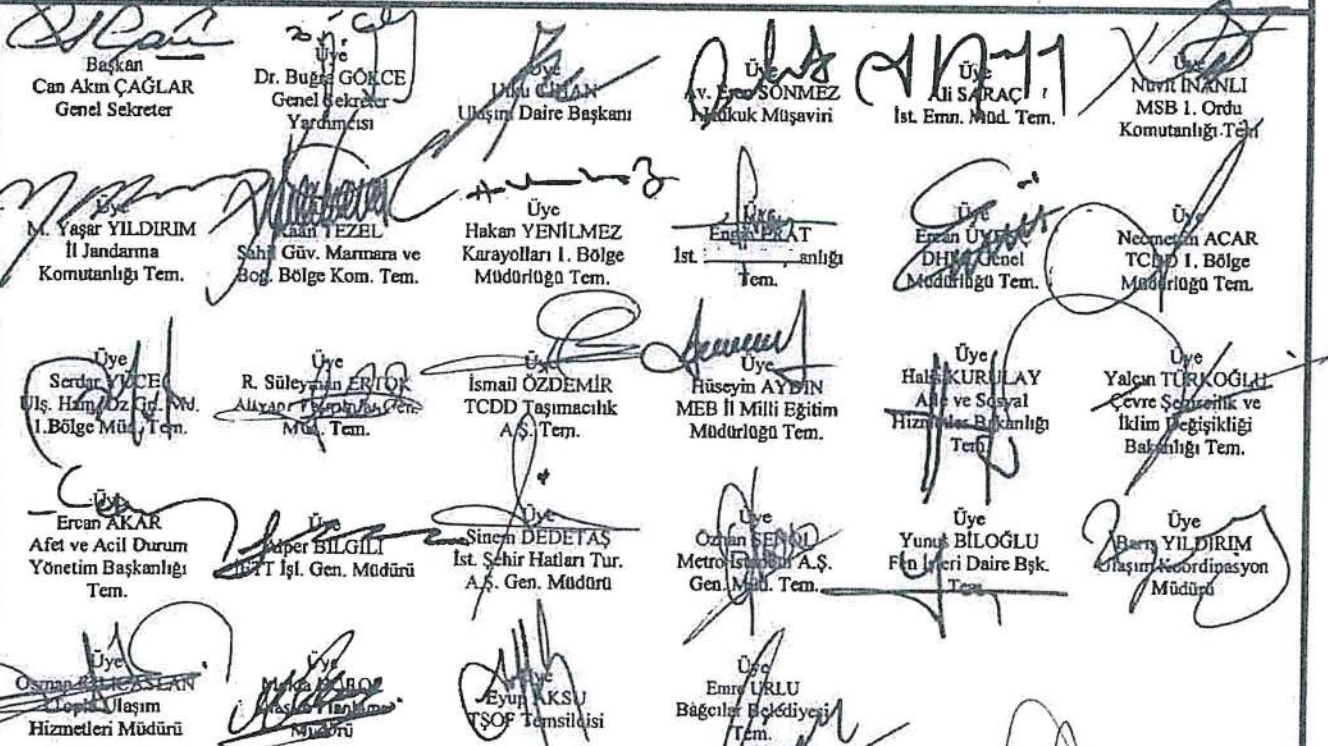 Başkan
Can Akın ÇAĞLAR
Genel Sekreter
Üye
Dr. Buğra GÖKCE
Genel Sekreter
Yardımcısı
Üye
Utku CİHAN
Ulaşım Daire Başkanı
Üye
Av. Eren SÖNMEZ
Hukuk Müşaviri
Üye
Ali SARAÇ
İst. Emn. Müd. Tem.
Üye
Nuvit İNANLI
MSB 1. Ordu
Komutanlığı Tem
Üye
M. Yaşar YILDIRIM
İl Jandarma
Komutanlığı Tem.
Kaan TEZEL
Sahil Güv. Marmara ve
Boğ. Bölge Kom. Tem.
Üye
Hakan YENİLMEZ
Karayolları 1. Bölge
Müdürlüğü Tem.
Üye
İst. anlığı
Tem.
Üye
Ercan
DHMİ Genel
Müdürlüğü Tem.
Üye
Necmettin ACAR
TCDD 1. Bölge
Müdürlüğü Tem.
Üye
Serdar YÜCEL
Ulş. Hizm.
1.Bölge Müd. Tem.
Üye
R. Süleyman ERTOK
Altyapı Yatırımları Gen.
Müd. Tem.
Üye
İsmail ÖZDEMİR
TCDD Taşımacılık
A.Ş. Tem.
Üye
Hüseyin AYDIN
MEB İl Milli Eğitim
Müdürlüğü Tem.
Üye
KURULAY
Aile ve Sosyal
Hizmetler Bakanlığı
Tem.
Üye
Yalçın TÜRKOĞLU
Çevre Şehircilik ve
İklim Değişikliği
Bakanlığı Tem.
Üye
Ercan AKAR
Afet ve Acil Durum
Yönetim Başkanlığı
Tem.
Üye
Alper BİLGİLİ
İETT İşl. Gen. Müdürü
Üye
Sinem DEDETAŞ
İst. Şehir Hatları Tur.
A.Ş. Gen. Müdürü
Üye
Özhan
Metro İstanbul A.Ş.
Gen. Müd. Tem.
Üye
Yunus BİLOĞLU
Fen İşleri Daire Bşk.
Tem.
Üye
Barış YILDIRIM
Ulaşım Koordinasyon
Müdürü
Üye
Osman KILIÇASLAN
Toplu Ulaşım
Hizmetleri Müdürü
Üye
Müdürü
Üye
Eyup AKSU
TŞOF Temsilcisi
Üye
Emre URLU
Bağcılar Belediyesi
Tem.